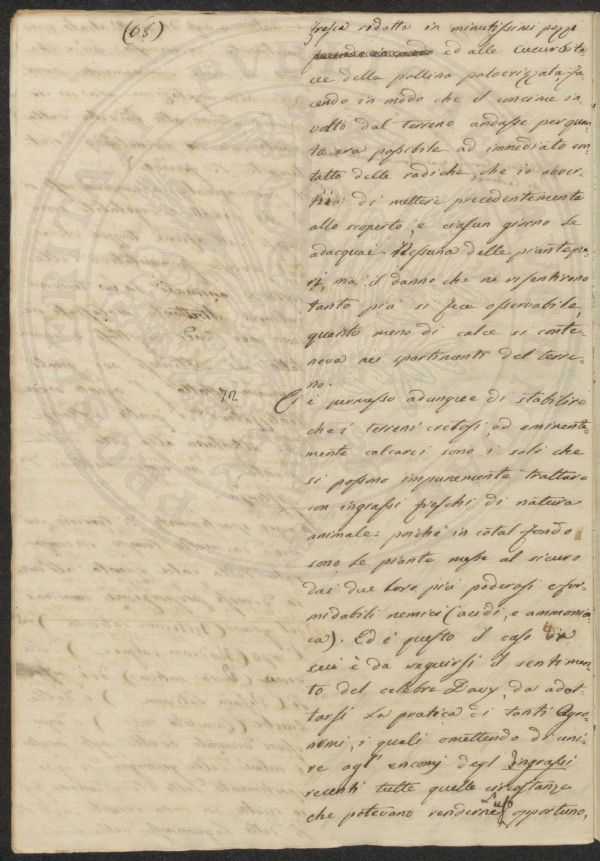 (68)
fresca ridotta in minutissimi pezzi
ed alle cucurbita
cee della pollina polverizzata, fa
cendo in modo che il concime in
volto dal terreno andasse per quan
to era possibile ad immediato con
tatto delle radiche, che io avver
tii di mettere precedentemente
allo scoperto, e ciascun giorno le
adacquai. Nessuna delle piante pe
rì, ma il danno che ne risentirono
tanto più si fece osservabile,
quanto meno di calce si conte
neva nei spartimenti del terre
no.
72 Ci è permesso adunque di stabilire
che i terreni cretosi, ed eminente
mente calcarei sono i soli che
si possono impunemente trattare
con ingrassi freschi di natura
animale: poichè in cotal fondo
sono le piante messe al sicuro
dai due loro più poderosi e for
midabili nemici (acidi, e ammonia
ca). Ed è questo il caso in
cui è da seguirsi il sentimen
to del celebre Davy, da adot
tarsi la pratica di tanti Agro
nomi, i quali omettendo di uni
re agli encomj degl'Ingrassi
recenti tutte quelle circostanze
che potevano renderne l'uso opportuno,
PROSPERITA